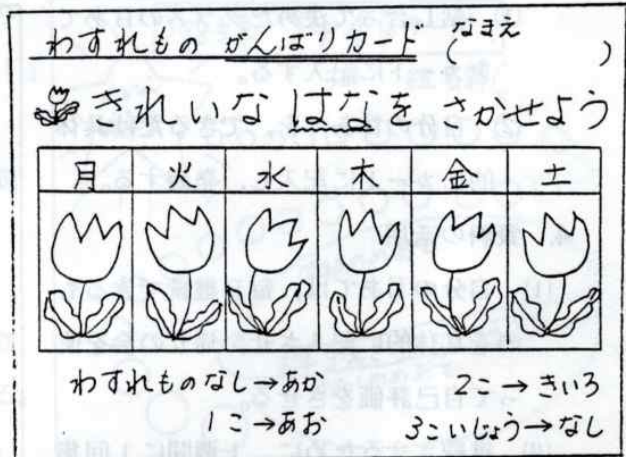 わすれもの がんばりカード (なまえ )
きれいな はなを さかせよう
月 火 水 木 金 土
わすれものなし→あか 2こ→きいろ
1こ→あお 3こいじょう→なし